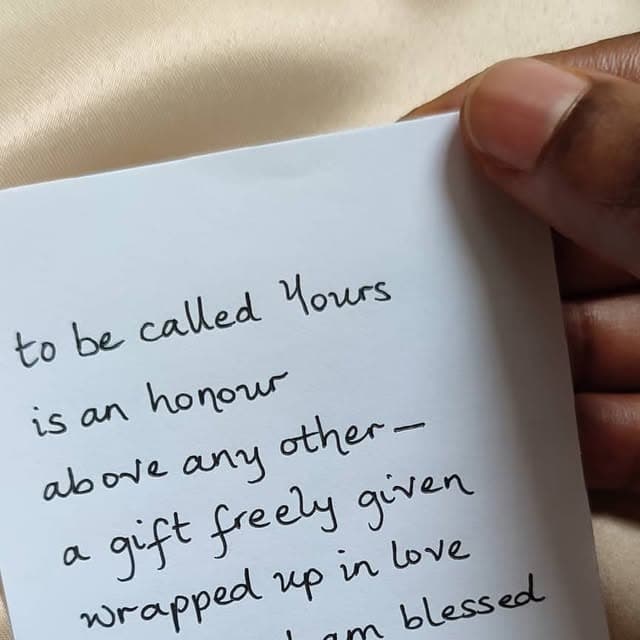 to be called Yours
is an honour
above any other—
a gift freely given
wrapped up in love
am blessed